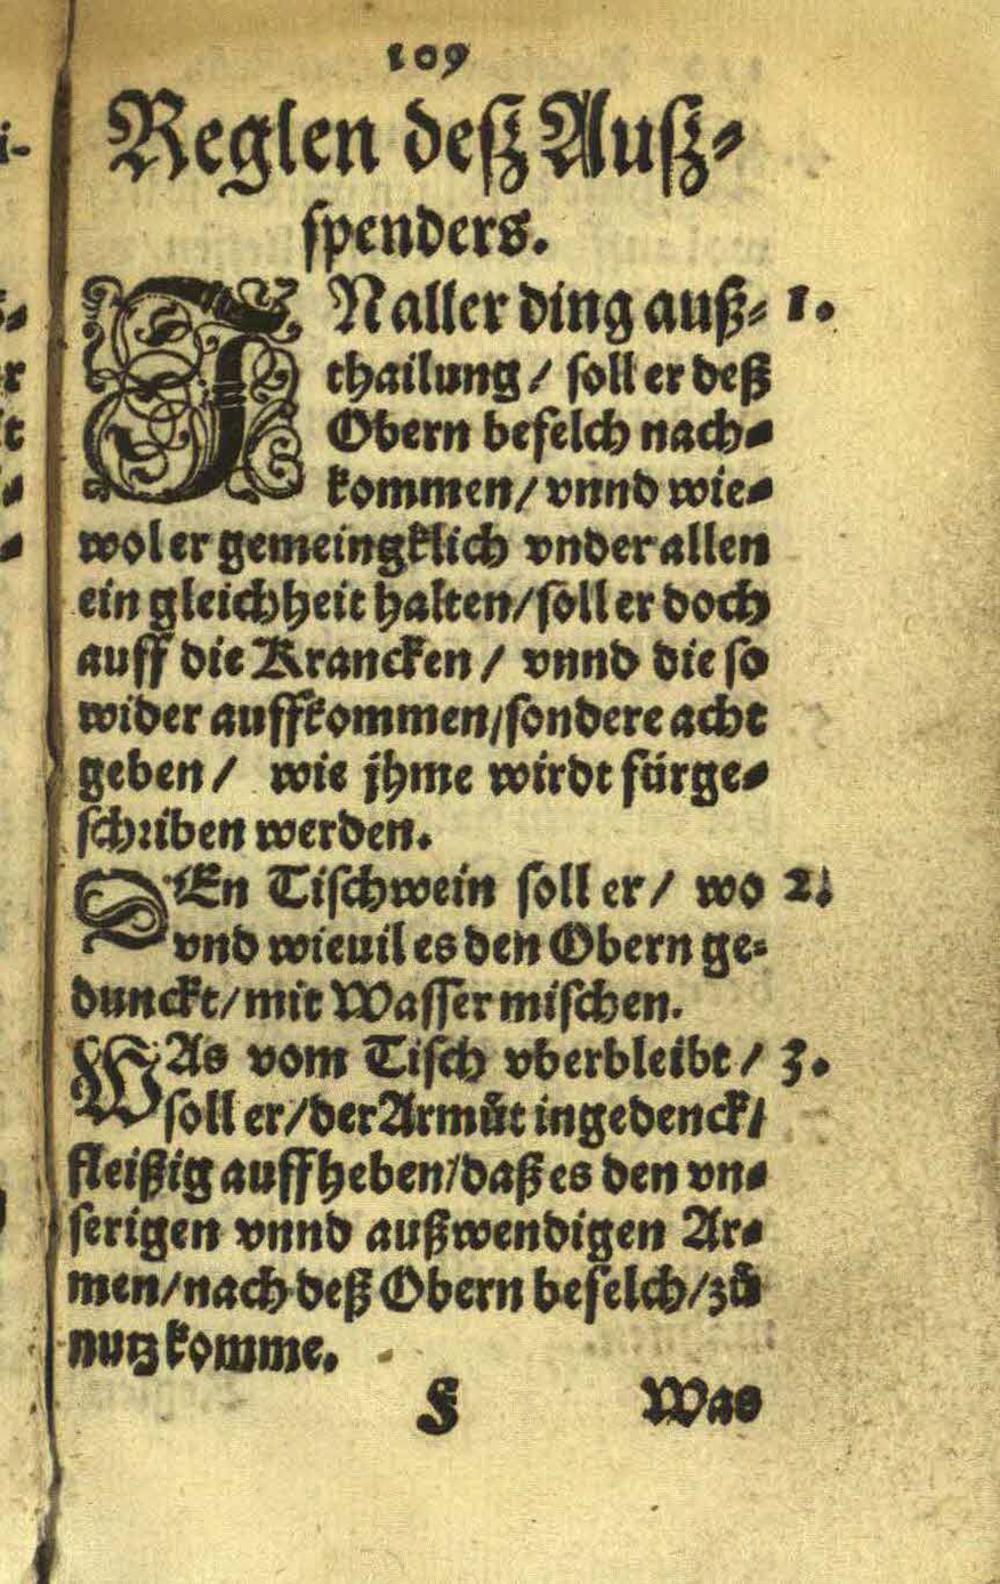 109
Reglen deß Auß-
spenders.
IN aller ding auß- 1.
thailung / soll er deß
Obern befelch nach-
kommen / vnnd wie-
wol er gemeingklich vnder allen
ein gleichheit halten / soll er doch
auff die Krancken / vnnd die so
wider auffkommen / sondere acht
geben / wie jhme wirdt fürge-
schriben werden.
DEn Tischwein soll er / wo 2.
vnd wieuil es den Obern ge-
dunckt / mit Wasser mischen.
WAs vom Tisch vberbleibt / 3.
soll er / der Armůt ingedenck /
fleißig auffheben / daß es den vn-
serigen vnnd außwendigen Ar-
men / nach deß Obern befelch / zů
nutz komme.
F Was